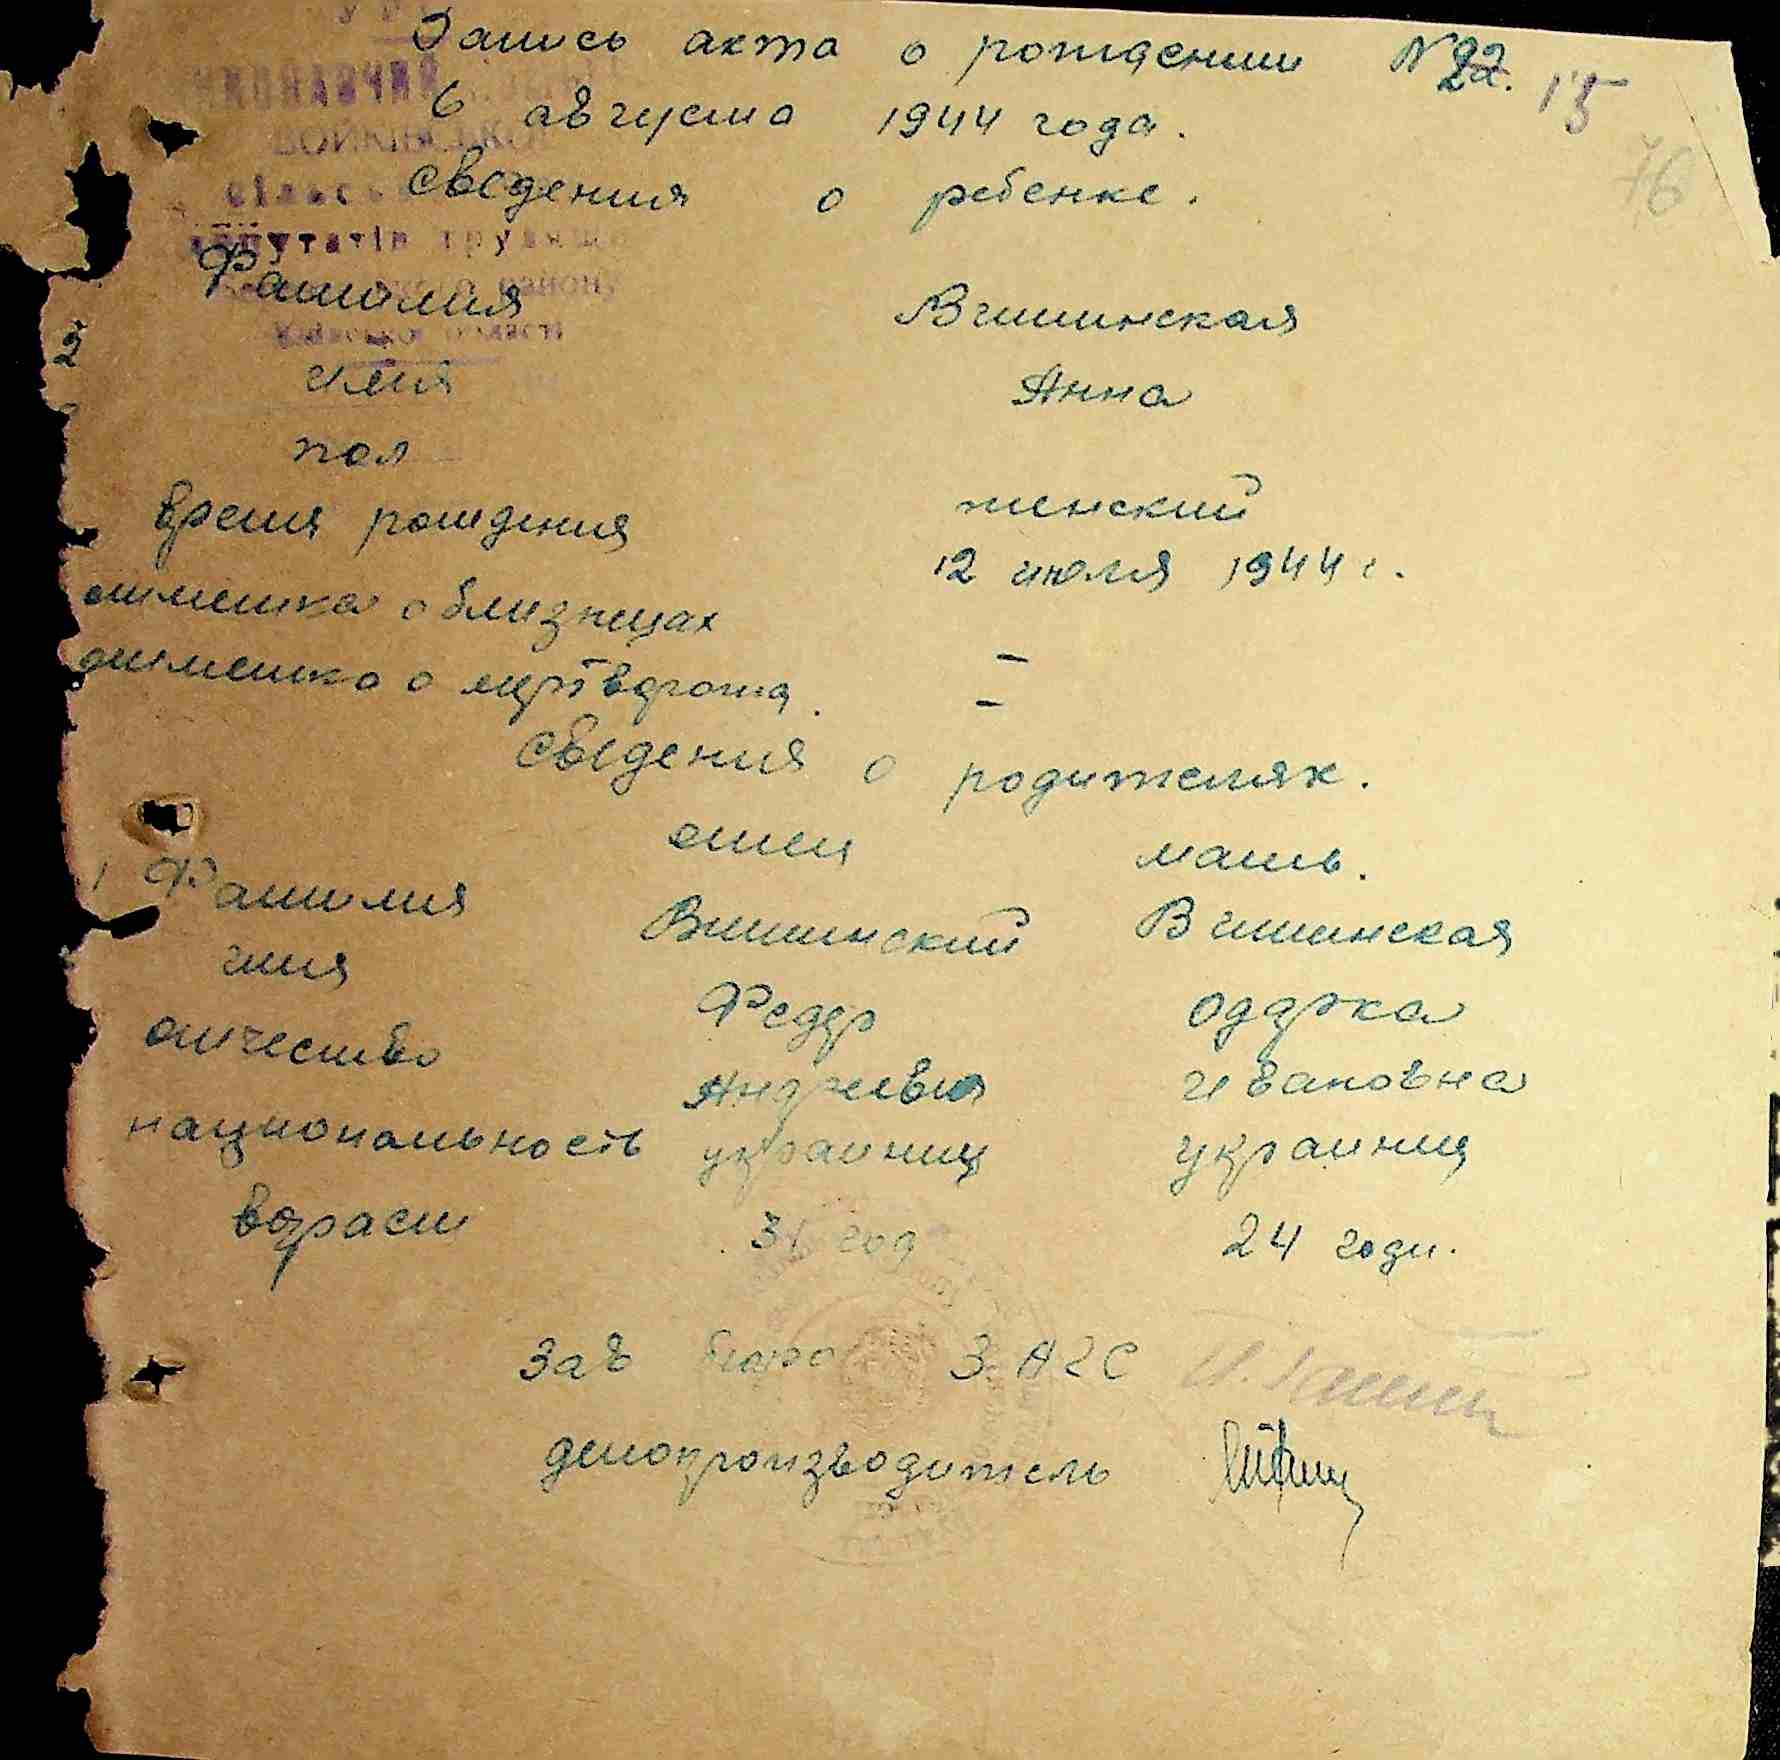 Запись акта о рождении N 22. 15
6 августа 1944 года.
76
Сведения о ребенке.
депутатів трудящ
району
області
Фамилия Вишинская
2
имя Анна
пол
женский
время рождения
12 июля 1944 г.
отметка о близнецах -
отметка о мертворожд. -
Сведения о родителях.
отец мать.
1 Фамилия Вишинский Вишинская
имя Федор Одарка
отчество Андреевич Ивановна
национальность украинц украинц
возраст 31 год 24 годи.
Зав бюро ЗАГС
делопроизводитель